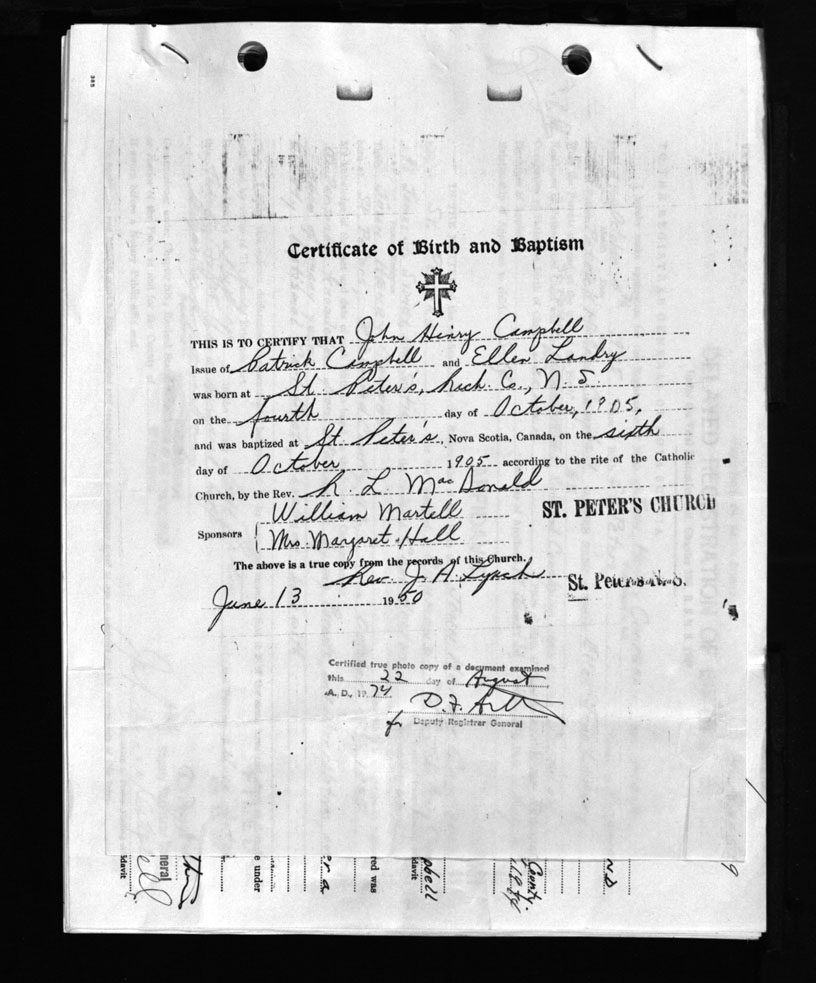 Certificate of Birth and Baptism
THIS IS TO CERTIFY THAT John Henry Campbell
Issue of Patrick Campbell and Ellen Landry
was born at St Peter's, Rich. Co., N. S.
on the fourth day of October, 1905,
and was baptized at St. Peter's, Nova Scotia, Canada, on the sixth
day of October 1905 according to the rite of the Catholic
Church, by the Rev. R. L MacDonald
Sponsors William Martell
Mrs. Margaret Hall
ST. PETER'S CHURCH
The above is a true copy from the records of this Church.
Rev. J. A. Lynch
St. Peter's N.S.
June 13 1950
Certified true photo copy of a document examined
this 22 day of August
A.D., 1974
D. F.
for Deputy Registrar General
neral
davit
e under
red was
pbell
davit
County.